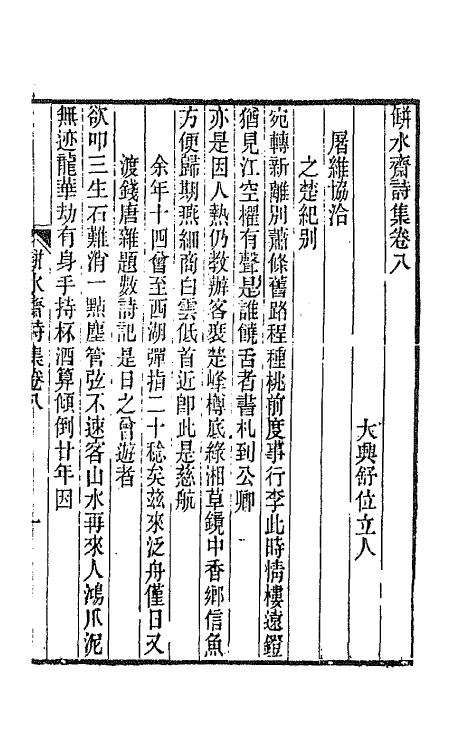 缾水齋詩集卷八
大興舒位立人
屠維協洽
之楚紀別
宛轉新離別蕭條舊路程種桃前度事行李此時情樓遠鐙
猶見江空櫂有聲是誰饒舌者書札到公卿
亦是因人熱仍教辦客裝楚峰樽底綠湘草鏡中香鄉信魚
方便歸期燕細商白雲低首近卽此是慈航
余年十四曾至西湖彈指二十稔矣茲來泛舟僅日又
渡錢唐雜題數詩記是日之曾遊者
欲叩三生石難消一點塵管弦不速客山水再來人鴻爪泥
無迹龍華劫有身手持杯酒算傾倒廿年因
缾水齋詩集卷八
一